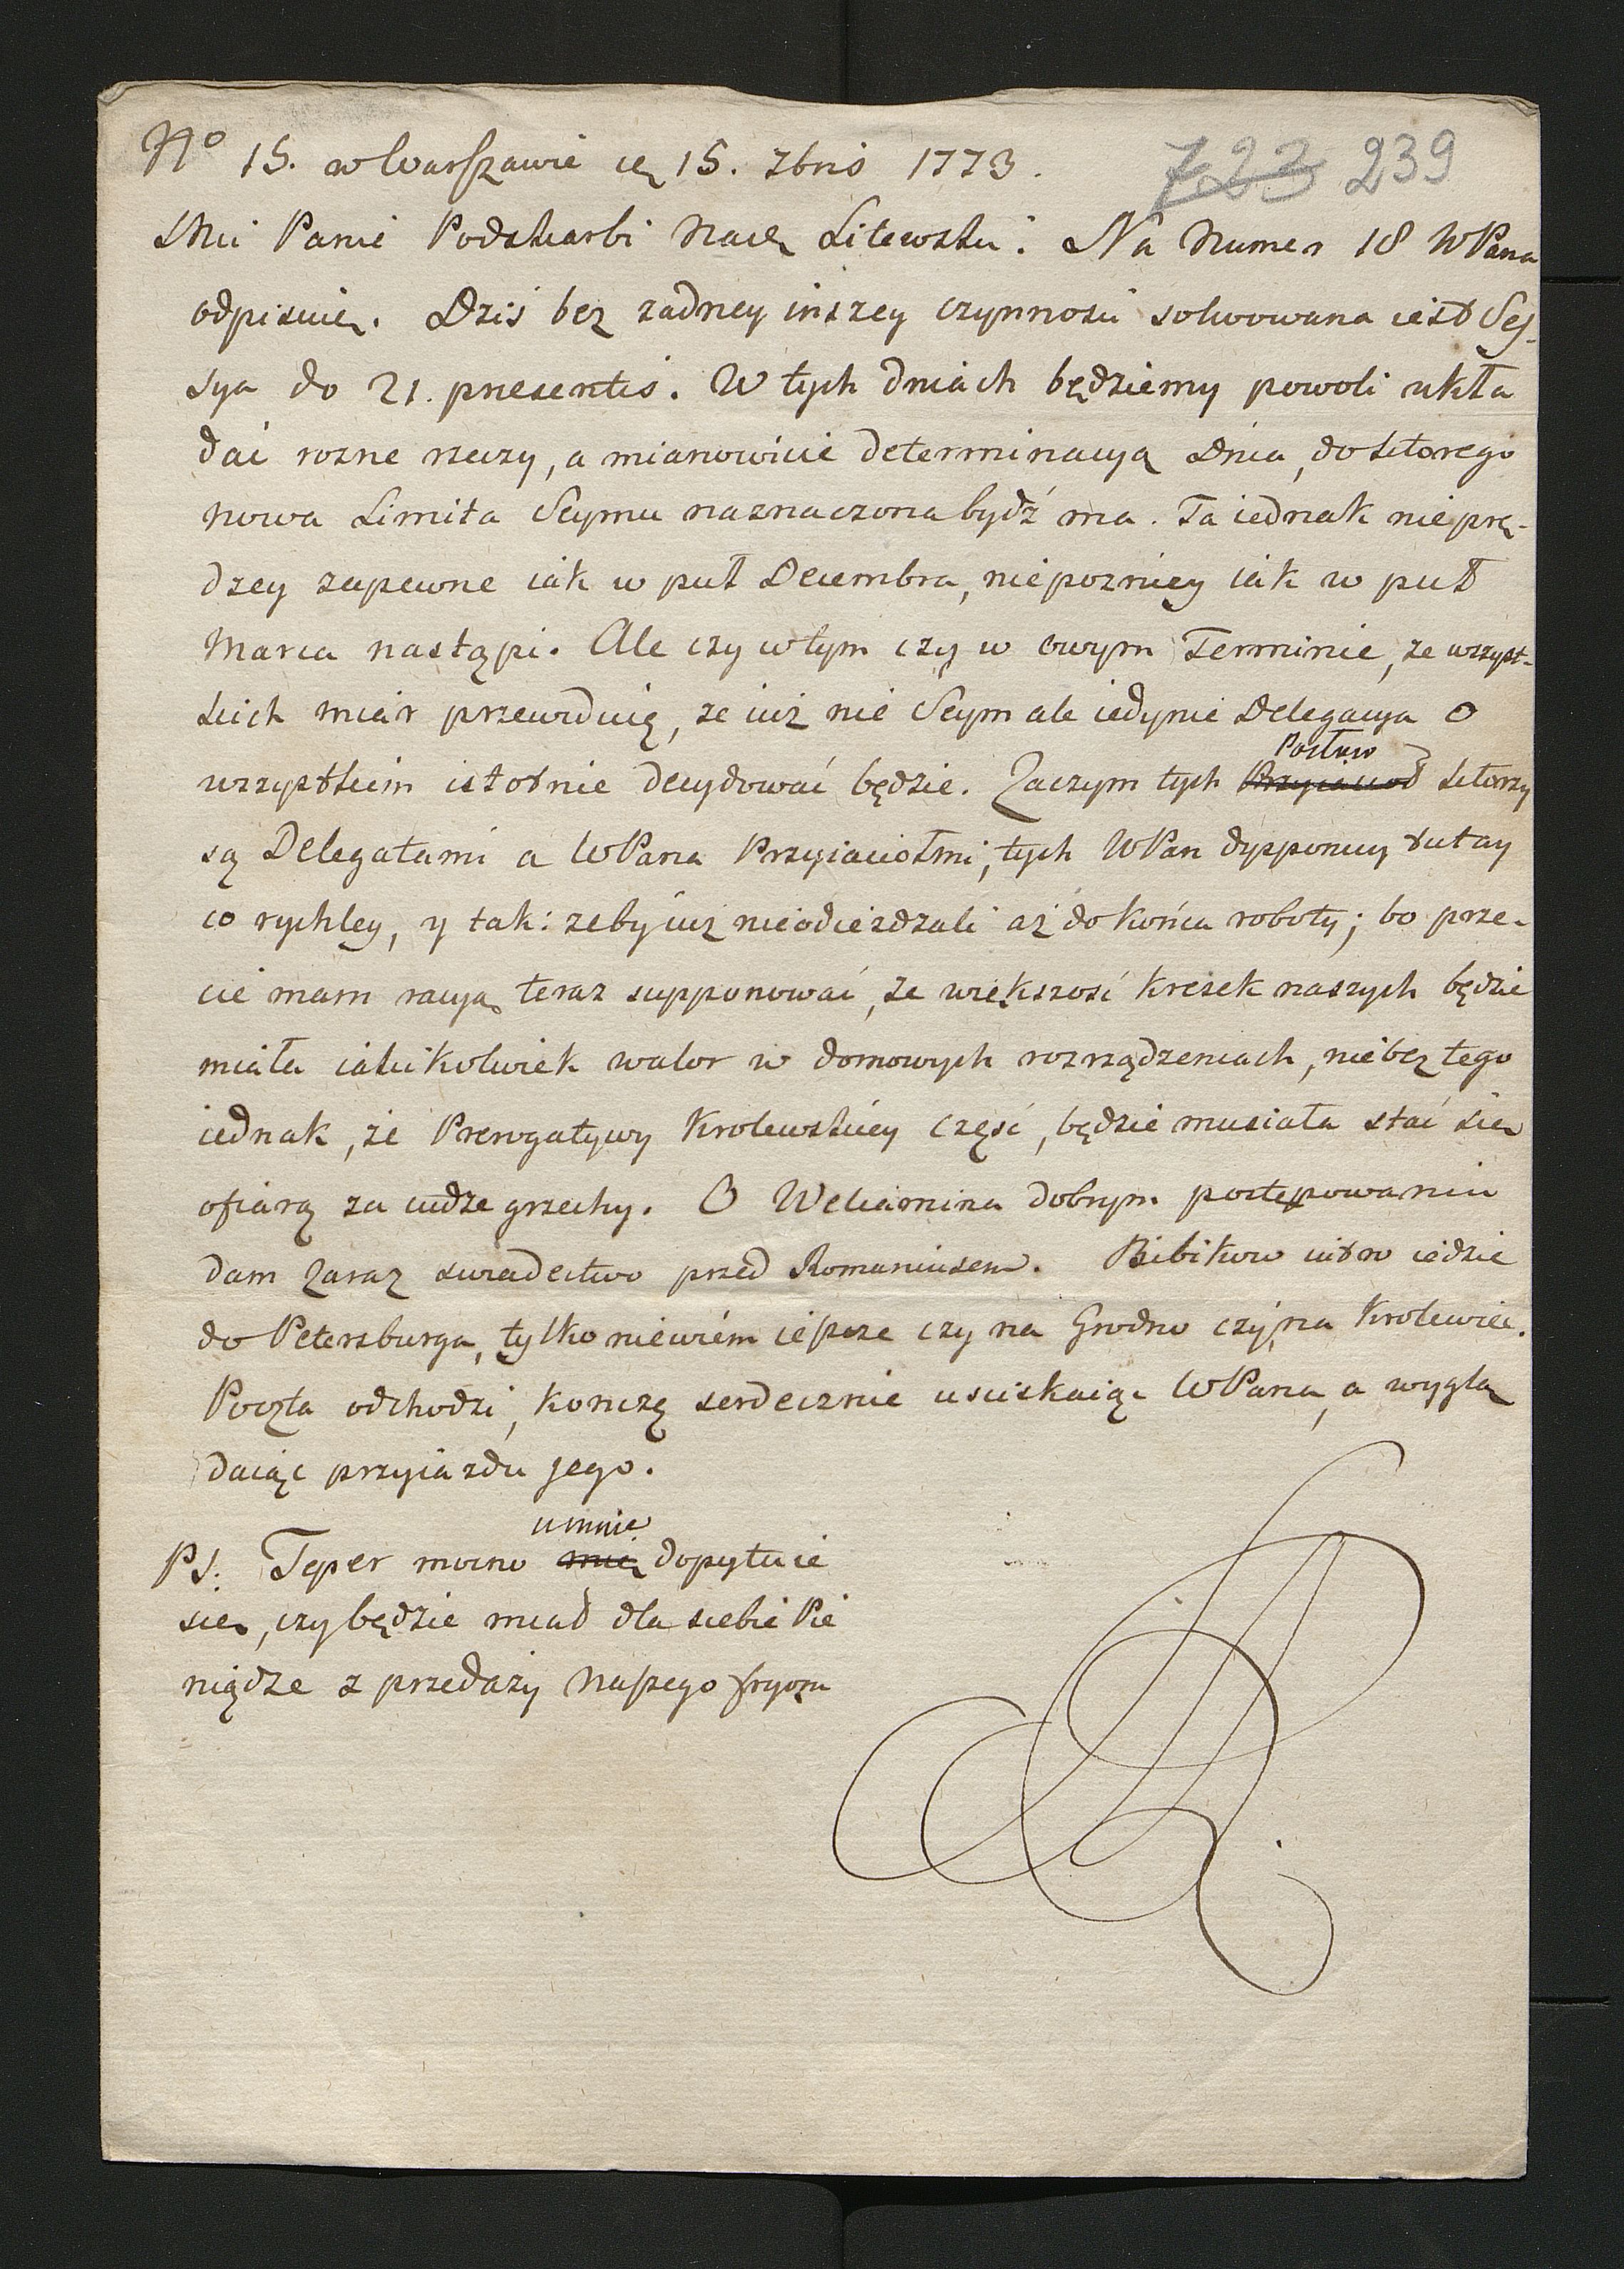 No 15. w Warszawie ię 15. 7bris 1773.
723 239
Mci Panie Podskarbi Naię Litewski. Na Numer 18 WPana
odpisuię. Dziś bez zadney inszey czynnosci solwowana iest Ses-
sya do 21. presentis. W tych dniach będziemy powoli ukła
dać rozne rzeczy, a mianowicie determinacyą Dnia, do ktorego
nowa Limita Seymu naznaczona bydź ma. Ta iednak nie prę-
dzey zapewne iak w puł Decembra, nie pozniey iak w puł
Marca nastąpi. Ale czy w tym czy w owym Terminie, ze wszyst-
kich miar przewiduię, ze iuż nie Seym ale iedynie Delegacya o
wszystkim istotnie decydować będzie. Zaczym tych Przyiacioł Posłow ktorzy
są Delegatami a WPana Przyiaciołmi, tych WPan dysponuy tutay
co rychley, y tak: zeby iuż nie odieżdzali aż do końca roboty; bo prze-
cie mam racyą teraz supponować, ze większość kresek naszych będzie
miała iakikolwiek walor w domowych rozrządzeniach, nie bez tego
iednak, że Prerogatywy Krolewskiey część, będzie musiała stać się
ofiarą za cudze grzechy. O Weliamina dobrym postępowaniu
dam zaraz swiadectwo przed Romaniusem. Bibikow iutro iedzie
do Petersburga, tylko niewiém ieszcze czy na Grodno czy na Krolewiec.
Poczta odchodzi, kończę serdecznie usciskaiąc WPana, a wyglą
daiąc przyiazdu jego.
PS. Teper mocno mię u mnie dopytuie
się, czy będzie miał dla siebie Pie
niądze z przedaży Naszego